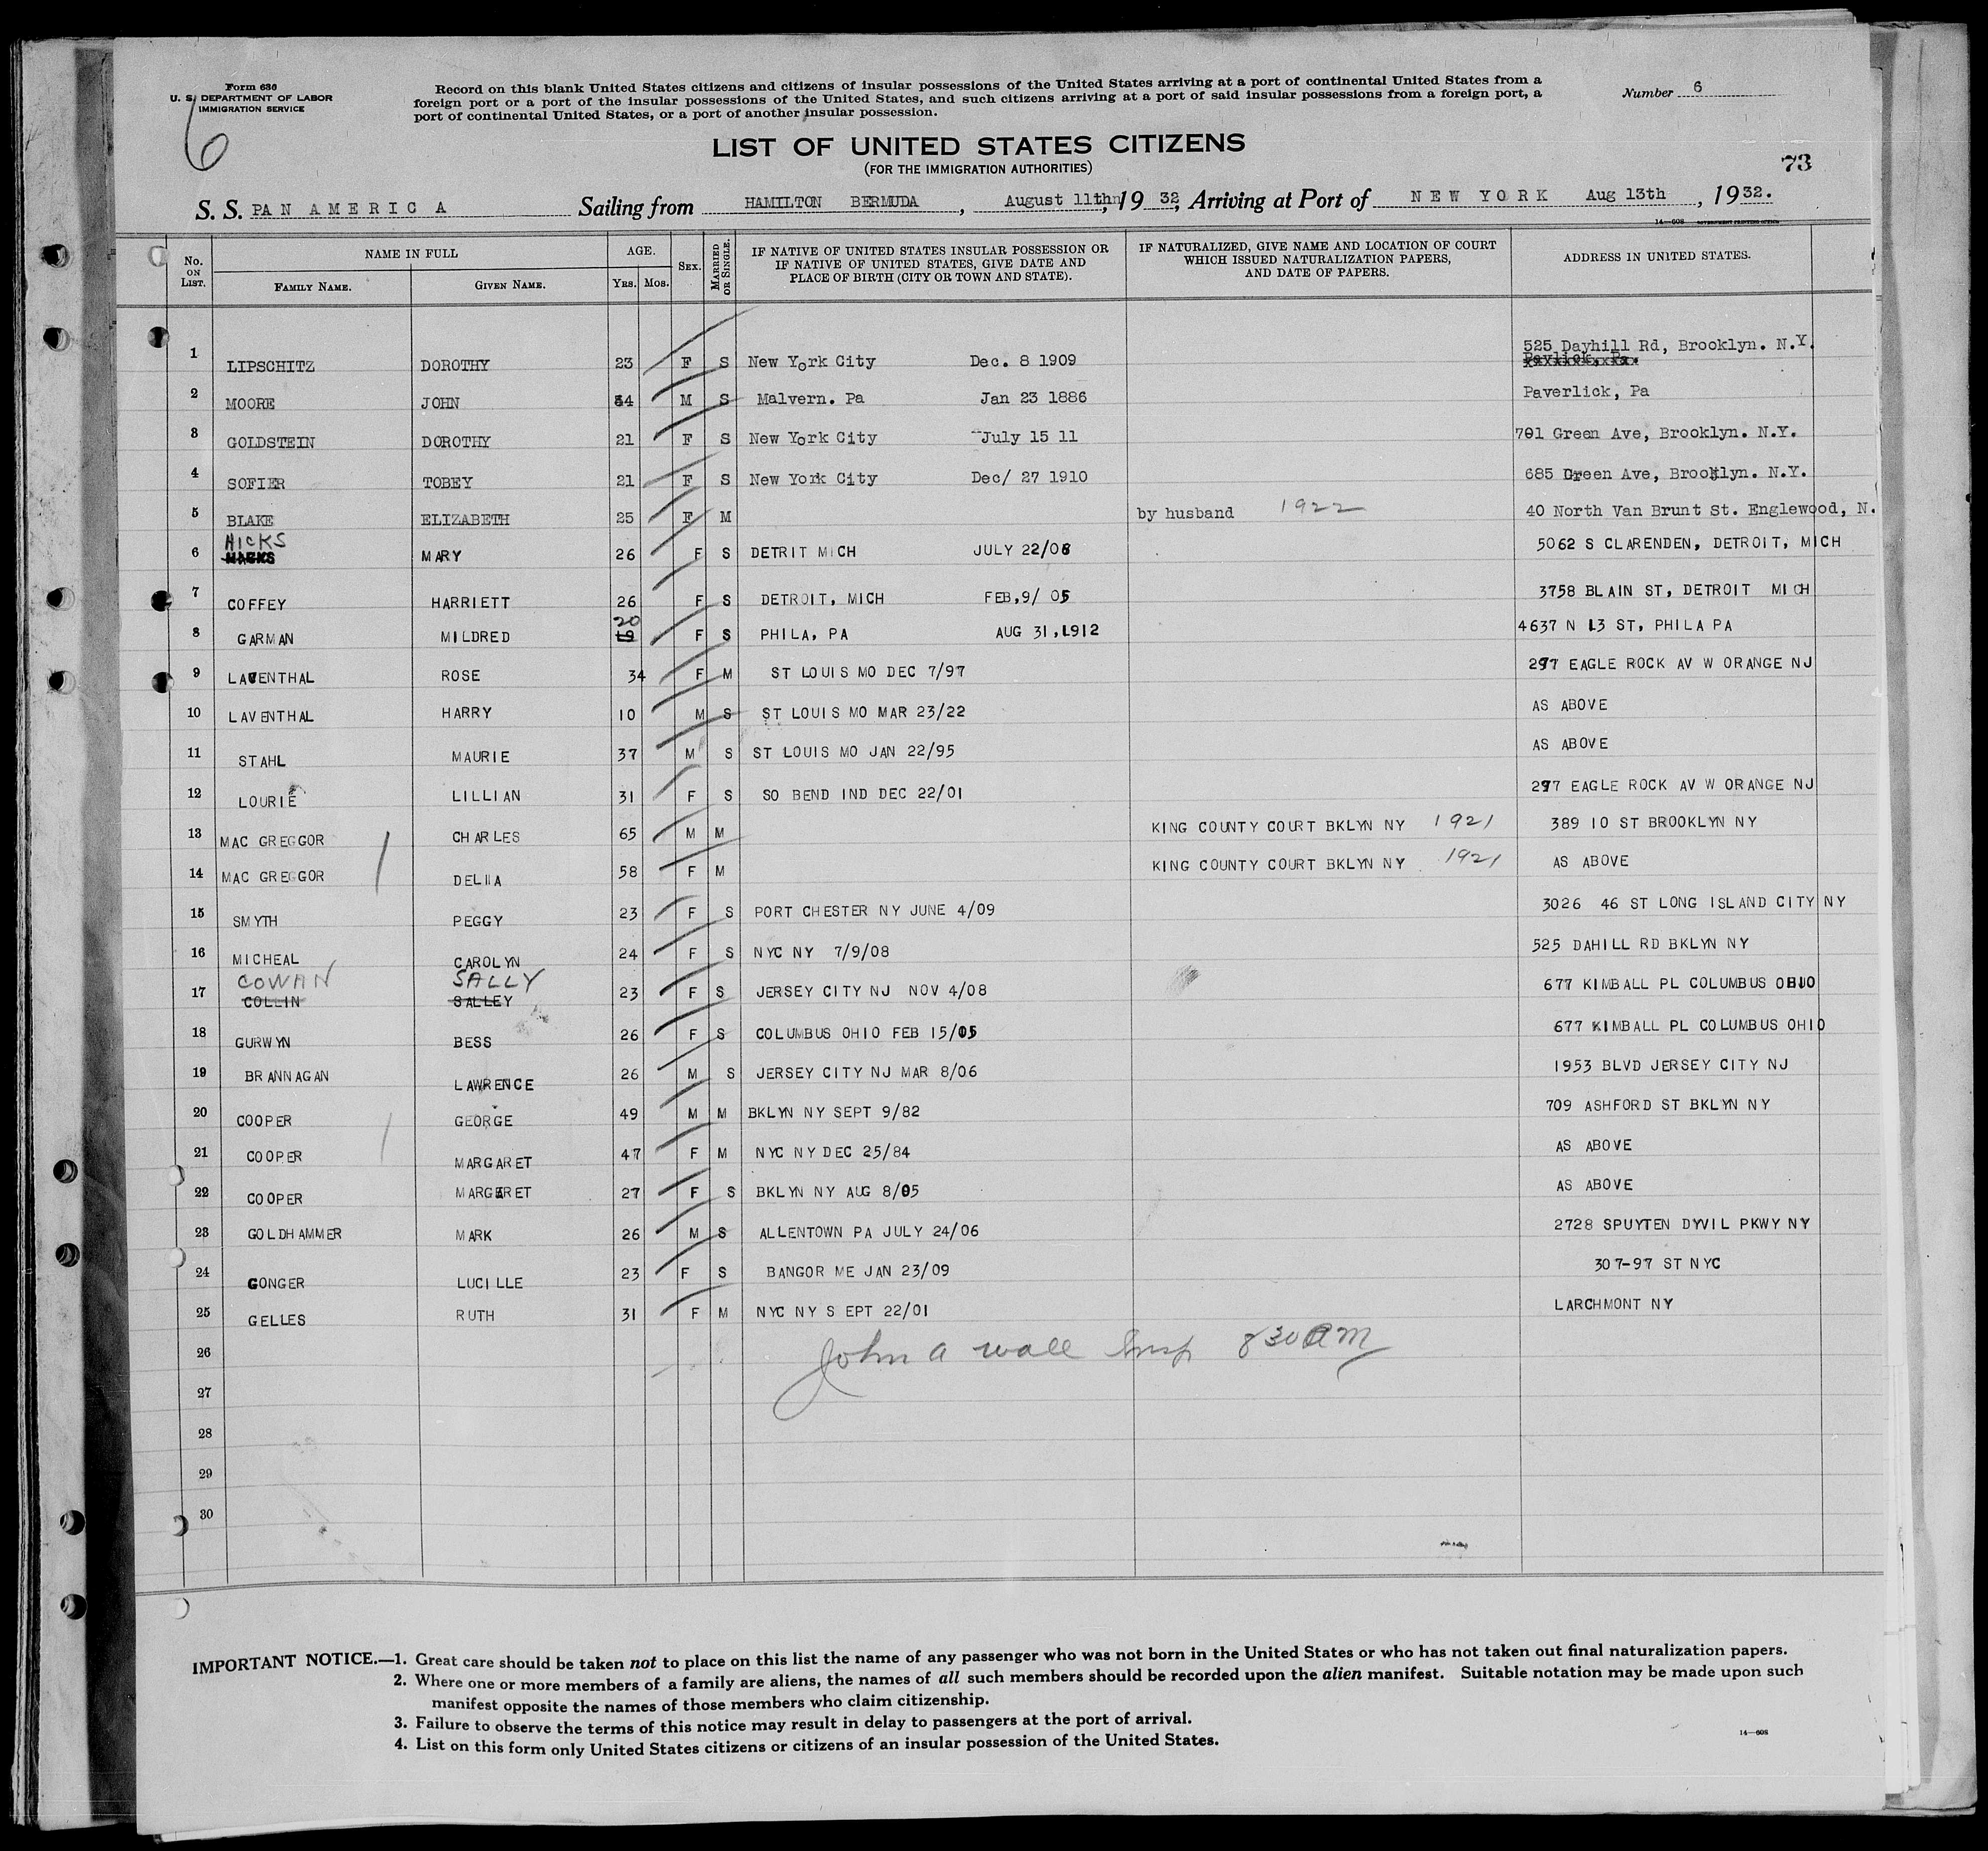 Form 630
U. S. DEPARTMENT OF LABOR
IMMIGRATION SERVICE
6
Record on this blank United States citizens and citizens of insular possessions of the United States arriving at a port of continental United States from a
foreign port or a port of the insular possessions of the United States, and such citizens arriving at a port of said insular possessions from a foreign port, a
port of continental United States, or a port of another insular possession.
Number 6
LIST OF UNITED STATES CITIZENS
(FOR THE IMMIGRATION AUTHORITIES)
73
S. S. PAN AMERICA Sailing from HAMILTON BERMUDA, August 11th, 19 32, Arriving at Port of NEW YORK Aug 13th, 1932.
14—608 GOVERNMENT PRINTING OFFICE
No. ON LIST. NAME IN FULL FAMILY NAME. GIVEN NAME. AGE. YRS. MOS. SEX. MARRIED OR SINGLE. IF NATIVE OF UNITED STATES INSULAR POSSESSION OR IF NATIVE OF UNITED STATES, GIVE DATE AND PLACE OF BIRTH (CITY OR TOWN AND STATE). IF NATURALIZED, GIVE NAME AND LOCATION OF COURT WHICH ISSUED NATURALIZATION PAPERS, AND DATE OF PAPERS. ADDRESS IN UNITED STATES.
1 LIPSCHITZ DOROTHY 23 F S New York City Dec. 8 1909 525 Dayhill Rd, Brooklyn. N.Y.
2 MOORE JOHN M S Malvern. Pa Jan 23 1886 Paverlick, Pa
3 GOLDSTEIN DOROTHY 21 F S New York City July 15 11 701 Green Ave, Brooklyn. N.Y.
4 SOFIER TOBEY 21 F S New York City Dec/ 27 1910 685 Green Ave, Brooklyn. N.Y.
5 BLAKE ELIZABETH 25 F M by husband 1922 40 North Van Brunt St. Englewood, N.
6 HICKS MARY 26 F S DETRIT MICH JULY 22/06 5062 S CLARENDEN, DETROIT, MICH
7 COFFEY HARRIETT 26 F S DETROIT, MICH FEB,9/ 05 3758 BLAIN ST, DETROIT MICH
8 GARMAN MILDRED 20 19 F S PHILA, PA AUG 31,1912 4637 N 13 ST, PHILA PA
9 LAVENTHAL ROSE 34 F M ST LOUIS MO DEC 7/97 297 EAGLE ROCK AV W ORANGE NJ
10 LAVENTHAL HARRY 10 M S ST LOUIS MO MAR 23/22 AS ABOVE
11 STAHL MAURIE 37 M S ST LOUIS MO JAN 22/95 AS ABOVE
12 LOURIE LILLIAN 31 F S SO BEND IND DEC 22/01 297 EAGLE ROCK AV W ORANGE NJ
13 MAC GREGGOR CHARLES 65 M M KING COUNTY COURT BKLYN NY 1921 389 10 ST BROOKLYN NY
14 MAC GREGGOR DELIA 58 F M KING COUNTY COURT BKLYN NY 1921 AS ABOVE
15 SMYTH PEGGY 23 F S PORT CHESTER NY JUNE 4/09 3026 46 ST LONG ISLAND CITY NY
16 MICHEAL CAROLYN 24 F S NYC NY 7/9/08 525 DAHILL RD BKLYN NY
COWAN SALLY
17 COLLIN SALLEY 23 F S JERSEY CITY NJ NOV 4/08 677 KIMBALL PL COLUMBUS OHIO
18 GURWYN BESS 26 F S COLUMBUS OHIO FEB 15/05 677 KIMBALL PL COLUMBUS OHIO
19 BRANNAGAN LAWRENCE 26 M S JERSEY CITY NJ MAR 8/06 1953 BLVD JERSEY CITY NJ
20 COOPER GEORGE 49 M M BKLYN NY SEPT 9/82 709 ASHFORD ST BKLYN NY
21 COOPER MARGARET 47 F M NYC NY DEC 25/84 AS ABOVE
22 COOPER MARGARET 27 F S BKLYN NY AUG 8/05 AS ABOVE
23 GOLDHAMMER MARK 26 M S ALLENTOWN PA JULY 24/06 2728 SPUYTEN DYVIL PKWY NY
24 GONGER LUCILLE 23 F S BANGOR ME JAN 23/09 307-97 ST NYC
25 GELLES RUTH 31 F M NYC NY SEPT 22/01 LARCHMONT NY
26 John A Wall Insp 830 AM
27
28
29
30
IMPORTANT NOTICE.—1. Great care should be taken not to place on this list the name of any passenger who was not born in the United States or who has not taken out final naturalization papers.
2. Where one or more members of a family are aliens, the names of all such members should be recorded upon the alien manifest. Suitable notation may be made upon such
manifest opposite the names of those members who claim citizenship.
3. Failure to observe the terms of this notice may result in delay to passengers at the port of arrival.
4. List on this form only United States citizens or citizens of an insular possession of the United States.
14—608